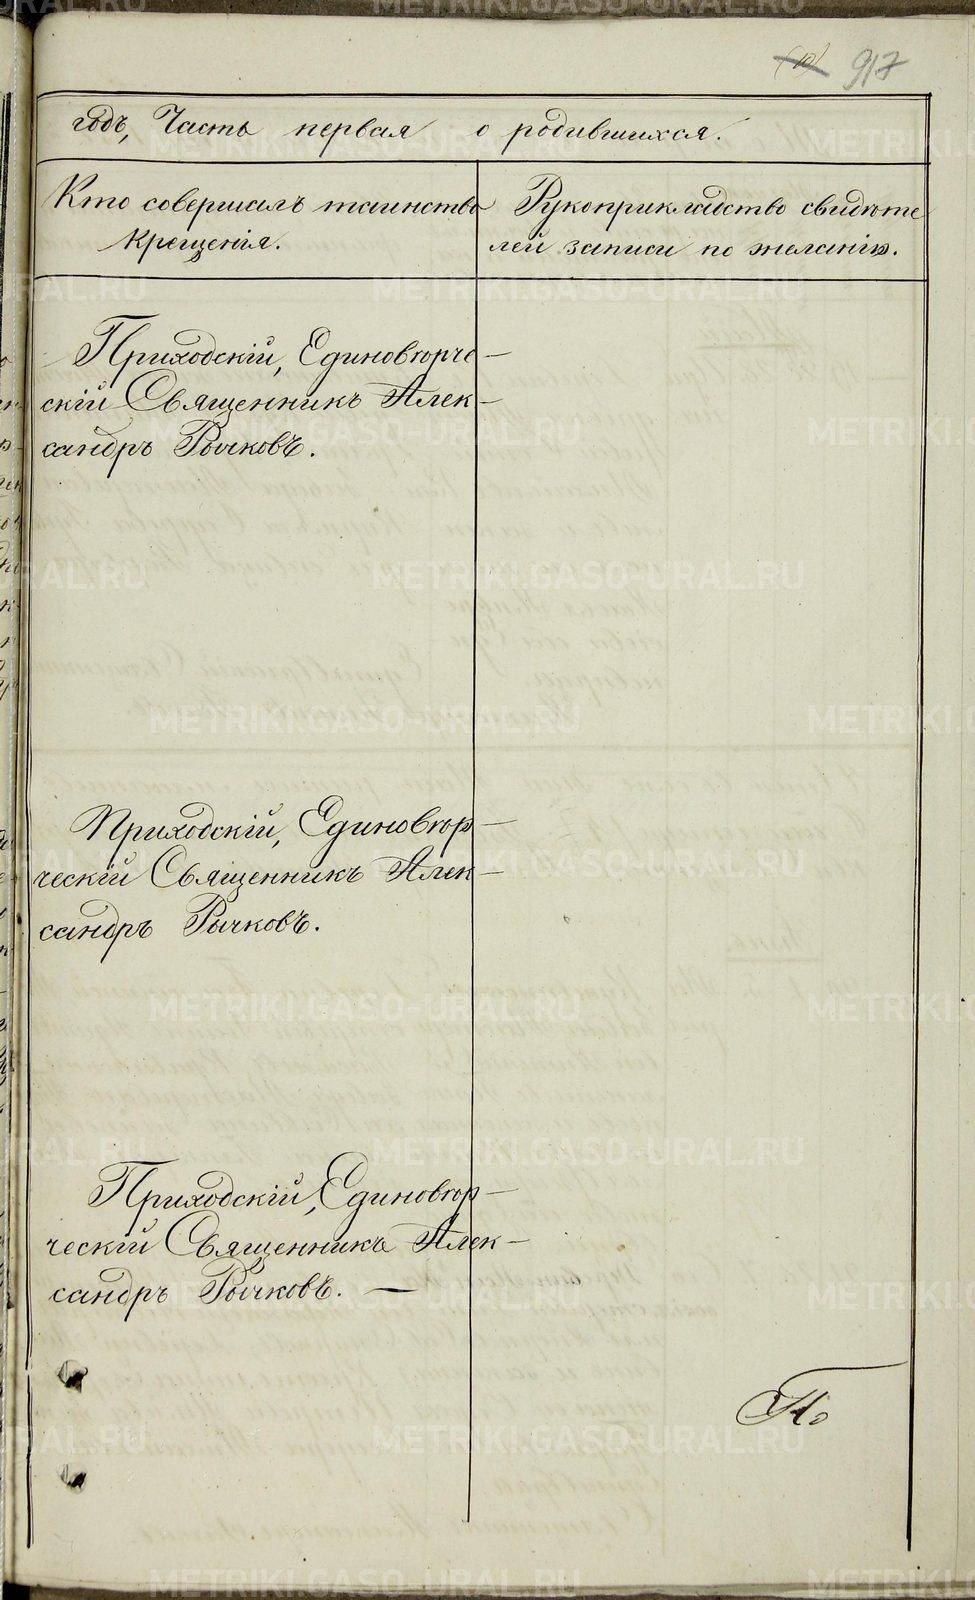 (10) 917
годъ, Часть первая о родившихся.
Кто совершалъ таинство
крещенія.
Рукоприкладство свидѣте
лей записи по желанію.
Приходскій, Единовѣрче
скій Священникъ Алек
сандръ Рычковъ.
Приходскій, Единовѣр
ческій Священникъ Алек
сандръ Рычковъ.
Приходскій, Единовѣр
ческій Священникъ Алек
сандръ Рычковъ. —
По
METRIKI.GASO-URAL.RU